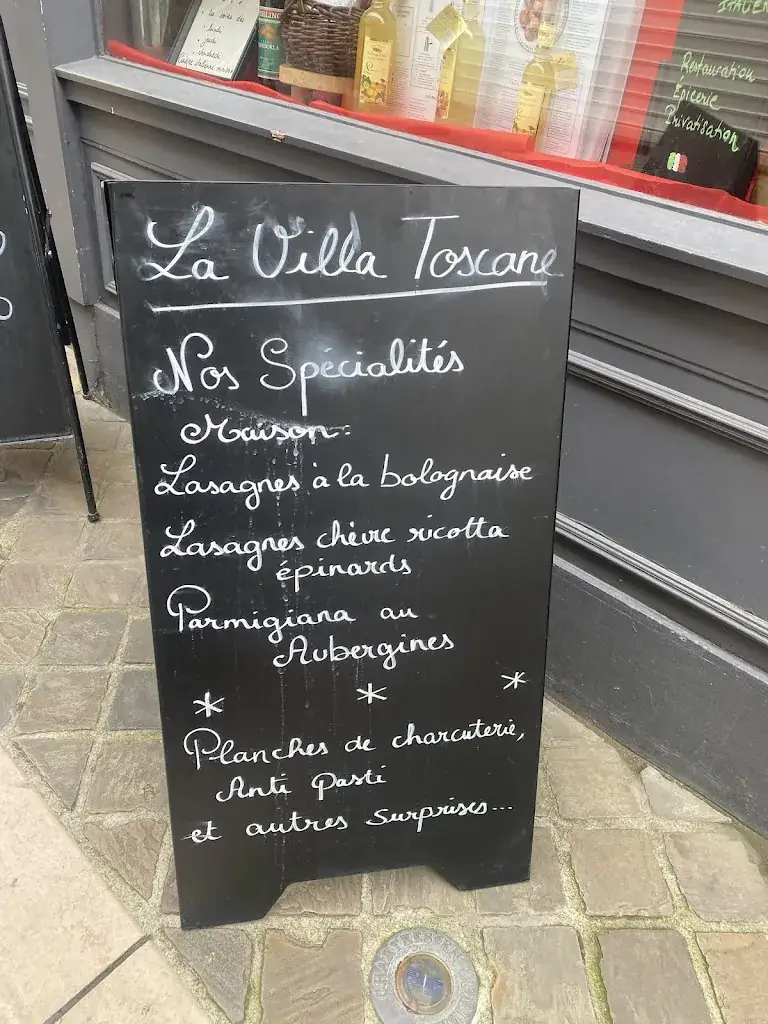 La Villa Toscane
Nos Spécialités
Maison:
Lasagnes à la bolognaise
Lasagnes chèvre ricotta
épinards
Parmigiana au
Aubergines
* * *
Planches de charcuterie,
Anti Pasti
et autres surprises...
Restauration
Epicerie
Privatisation